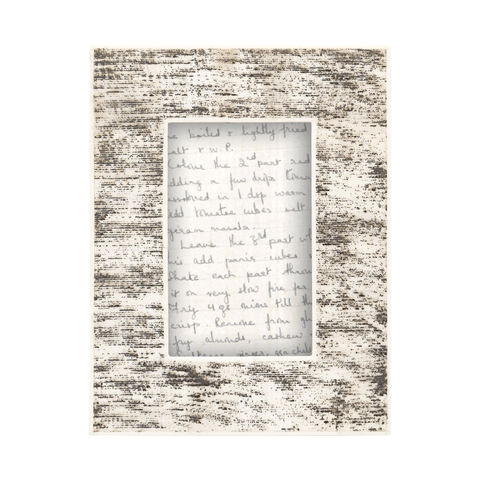 be boiled & lightly fried
salt & W.P.
Colour the 2nd part red
adding a few drops
in 1 dsp warm
add tomatoe cubes salt
garam masala.
Leave the 3rd part
this add panir cubes
Shake each part
it on very slow fire for
Fry 4 or 5 mins till the
crisp. Remove from
fry almonds, cashew